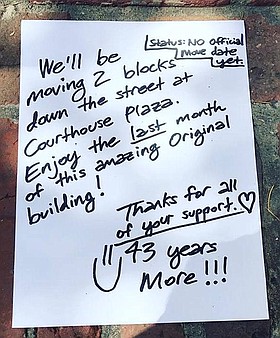 We'll be
moving 2 blocks
down the street at
Courthouse Plaza.
Enjoy the last month
of this amazing Original
building!
Status: NO official
move date
yet.
Thanks for all
of your support.♡
43 years
More !!!